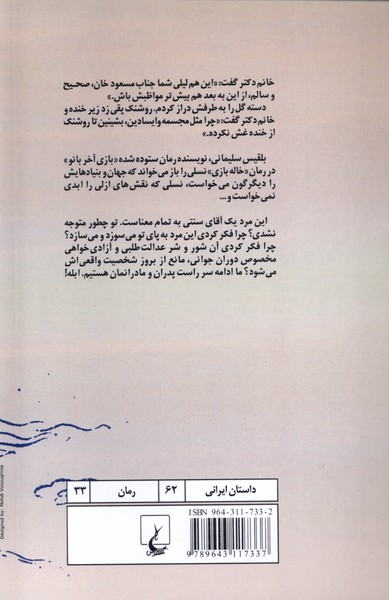 خانم دکتر گفت: «این هم لیلی شما جناب مسعود خان، صحیح
و سالم، از این به بعد هم بیش‌تر مواظبش باش.»
دسته گل را به طرفش دراز کردم. روشنک پقی زد زیر خنده و
خانم دکتر گفت: «چرا مثل مجسمه وایسادین، بشینین تا روشنک
از خنده غش نکرده.»
بلقیس سلیمانی، نویسنده رمان ستوده شده «بازی آخر بانو»
در رمان «خاله بازی» نسلی را باز می‌خواند که جهان و بنیادهایش
را دیگرگون می‌خواست، نسلی که نقش‌های ازلی را ابدی
نمی‌خواست و...
این مرد یک آقای سنتی به تمام معناست. تو چطور متوجه
نشدی؟ چرا فکر کردی این مرد به پای تو می‌سوزد و می‌سازد؟
چرا فکر کردی آن شور و شر عدالت‌طلبی و آزادی خواهی
مخصوص دوران جوانی، مانع از بروز شخصیت واقعی‌اش
می‌شود؟ ما ادامه سر راست پدران و مادرانمان هستیم. ابله!
داستان ایرانی ۶۲ رمان ۳۳
ISBN 964-311-733-2
9 789643 117337
ققنوس
Designed by: Mehdi Vosoughnia